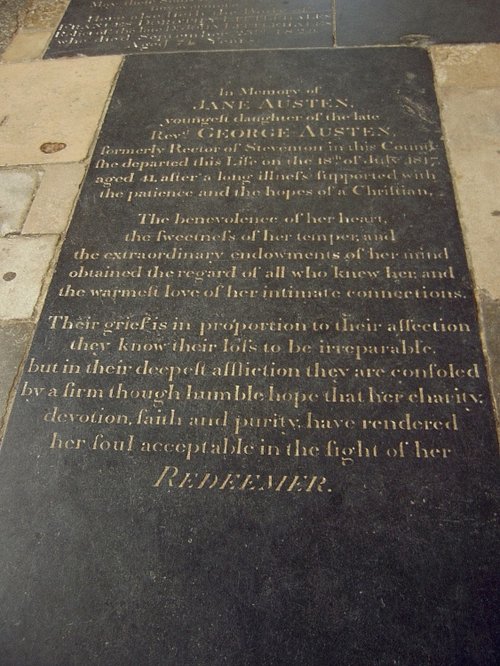 In Memory of
JANE AUSTEN,
youngest daughter of the late
Revd GEORGE AUSTEN,
formerly Rector of Steventon in this County
she departed this Life on the 18th of July 1817,
aged 41, after a long illneſs ſupported with
the patience and the hopes of a Chriſtian.
The benevolence of her heart,
the ſweetneſs of her temper, and
the extraordinary endowments of her mind
obtained the regard of all who knew her, and
the warmeſt love of her intimate connections.
Their grief is in proportion to their affection
they know their loſs to be irreparable,
but in their deepeſt affliction they are conſoled
by a firm though humble hope that her charity,
devotion, faith and purity, have rendered
her ſoul acceptable in the ſight of her
REDEEMER.